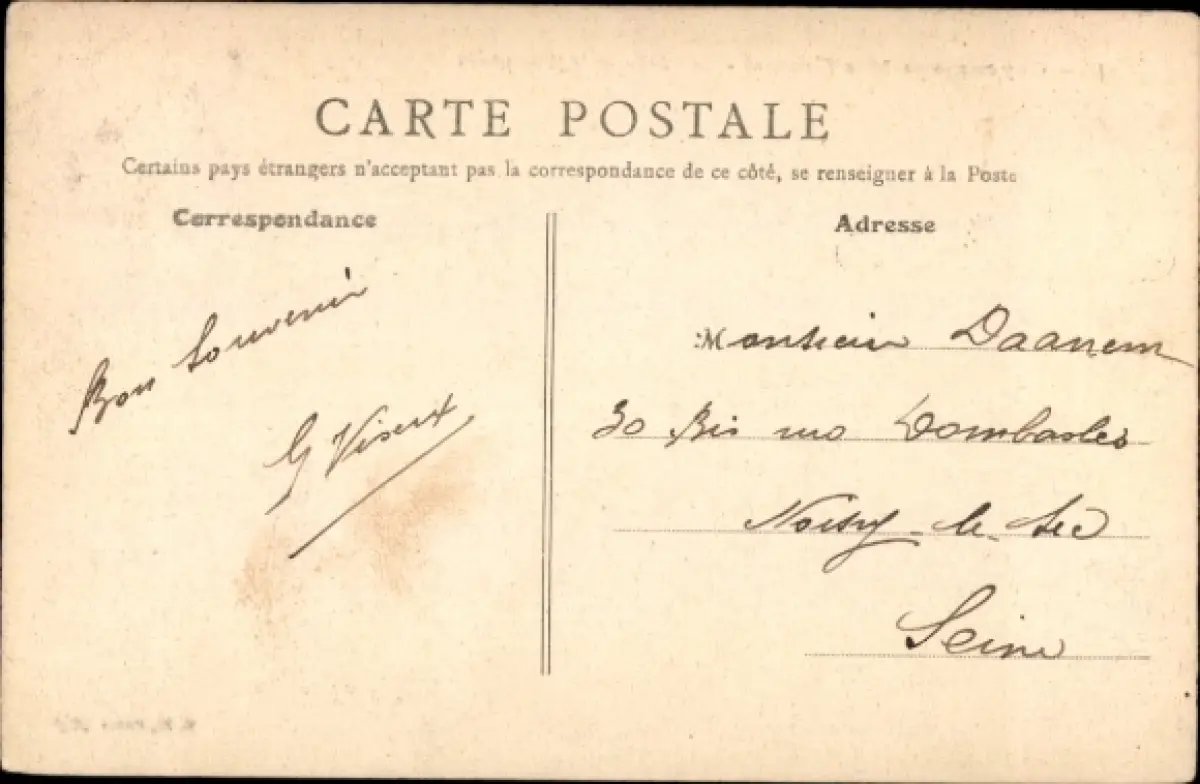 CARTE POSTALE
Certains pays étrangers n'acceptant pas la correspondance de ce côté, se renseigner à la Poste
Correspondance
Bon Souvenir
G
Adresse
Monsieur Daanem
30 Bis rue Dombasles
Noisy-le-Sec
Seine